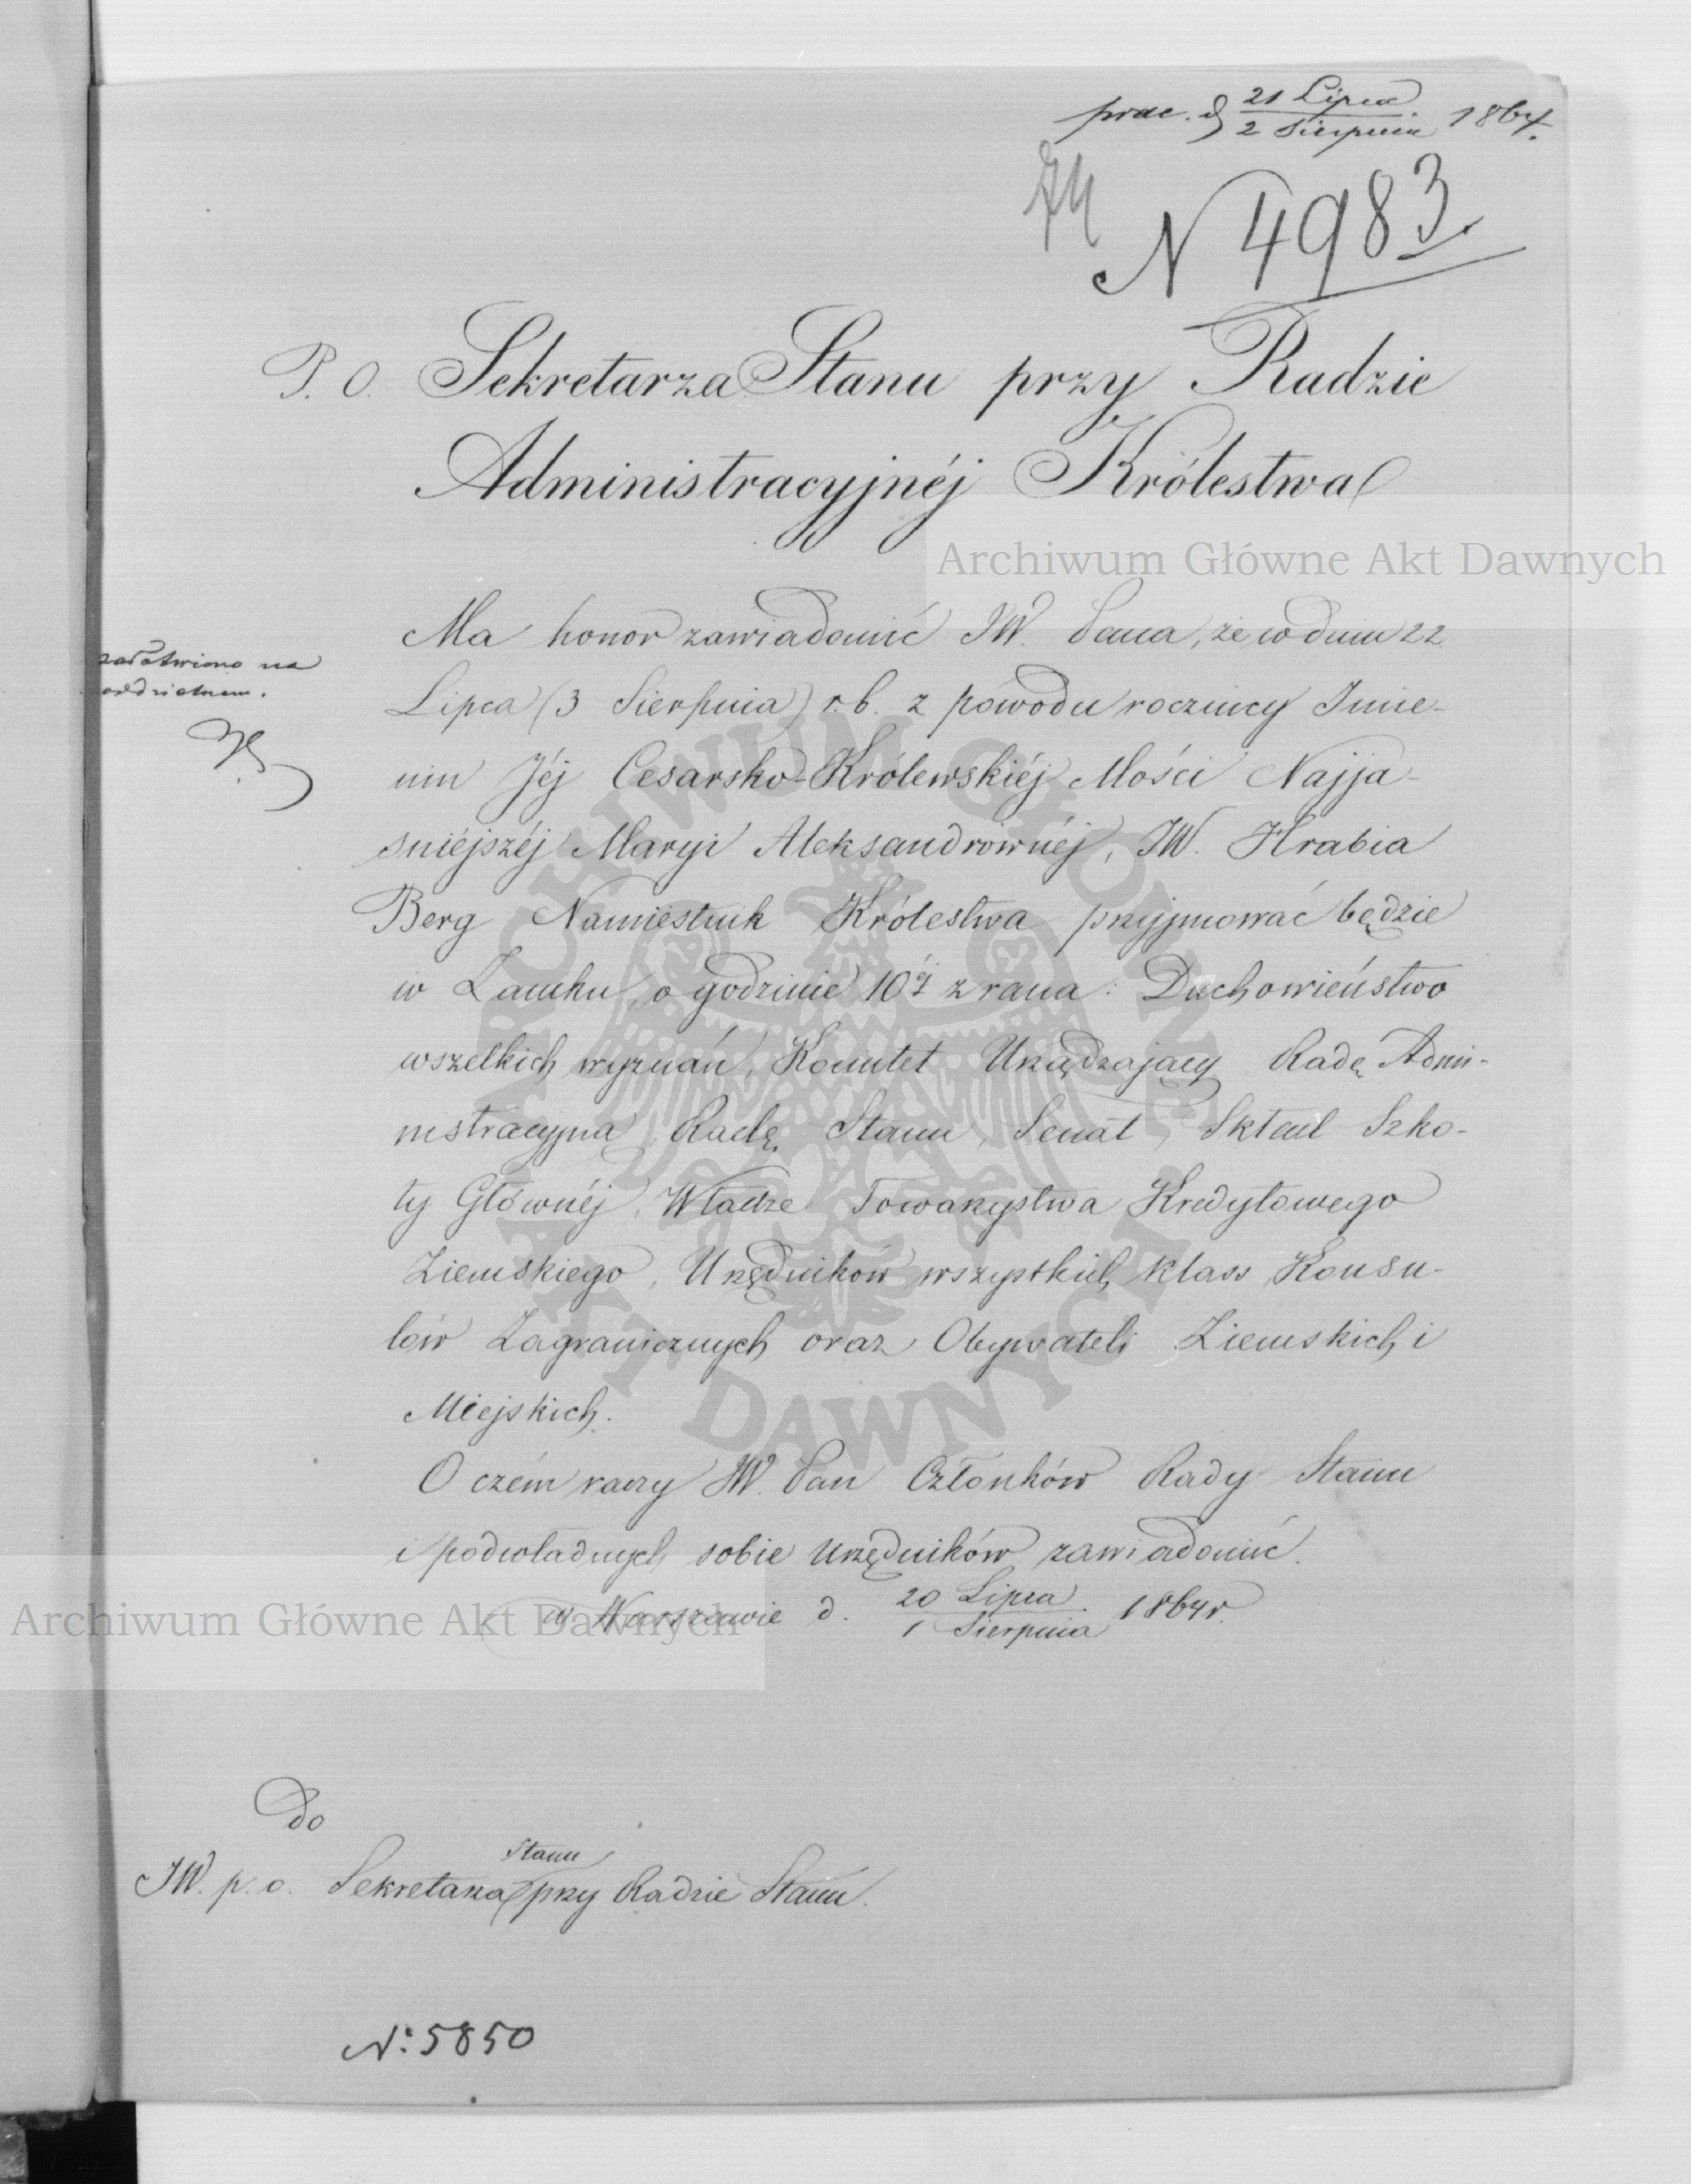 prac. d 21 Lipca
2 Sierpnia 1864.
N 4983.
P. O. Sekretarza Stanu przy Radzie
Administracyjnéj Królestwa
Archiwum Główne Akt Dawnych
Ma honor zawiadomić JW. Pana, że w dniu 22
załatwiono na
oddzielnem.
Lipca (3 Sierpnia) r.b. z powodu rocznicy Imie-
nin Jéj Cesarsko-Królewskiéj Mości Najja-
śniéjszéj Maryi Aleksandrównéj, JW. Hrabia
Berg Namiestnik Królestwa przyjmować będzie
w Zamku, o godzinie 10éj z rana: Duchowieństwo
wszelkich wyznań, Komitet Urządzający Radę Admi-
nistracyjną, Radę Stanu, Senat, Skład Szko-
ły Głównéj, Władze Towarzystwa Kredytowego
Ziemskiego, Urzędników wszystkich klass, Konsu-
lów Zagranicznych oraz Obywateli Ziemskich i
Miejskich.
O czém raczy JW. Pan Członków Rady Stanu
i podwładnych sobie urzędników zawiadomić.
w Warszawie d. 20 Lipca
1 Sierpnia 1864 r.
Archiwum Główne Akt Dawnych
Do
JW. p. o. Sekretarza Stanu przy Radzie Stanu.
N: 5850
ARCHIWUM GŁÓWNE
AKT DAWNYCH